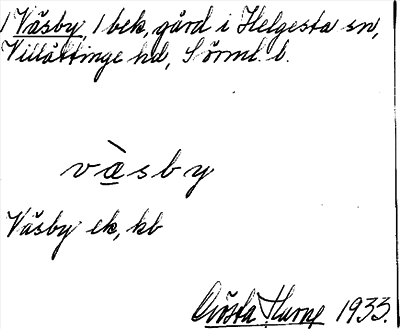 1 Väsby, 1 bek, gård i Helgesta sn,
Villåttinge hd, Sörml. l.
vàsby
Väsby ek, kb
Gösta 1933.